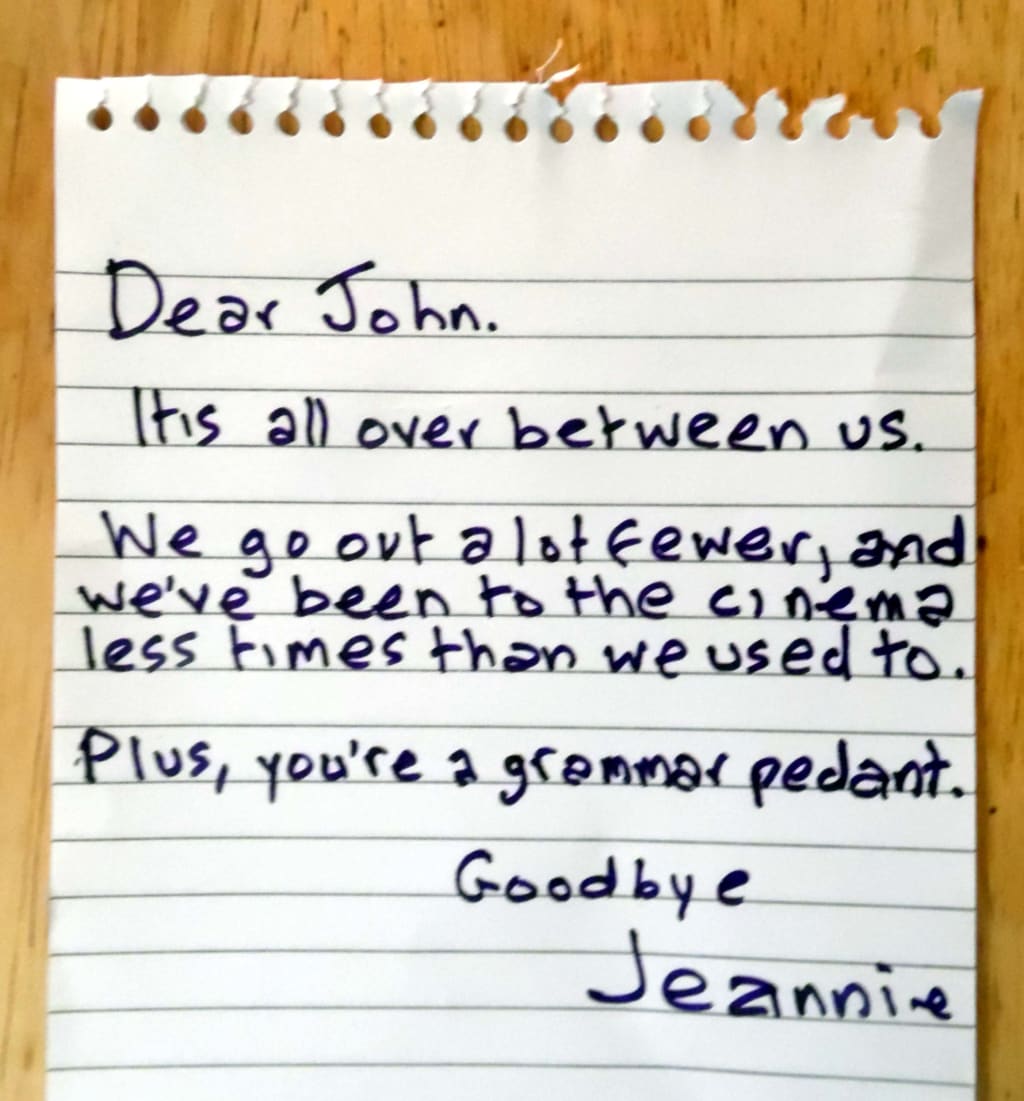 Dear John.
It is all over between us.
We go out a lot fewer, and
we've been to the cinema
less times than we used to.
Plus, you're a grammar pedant.
Goodbye
Jeannie